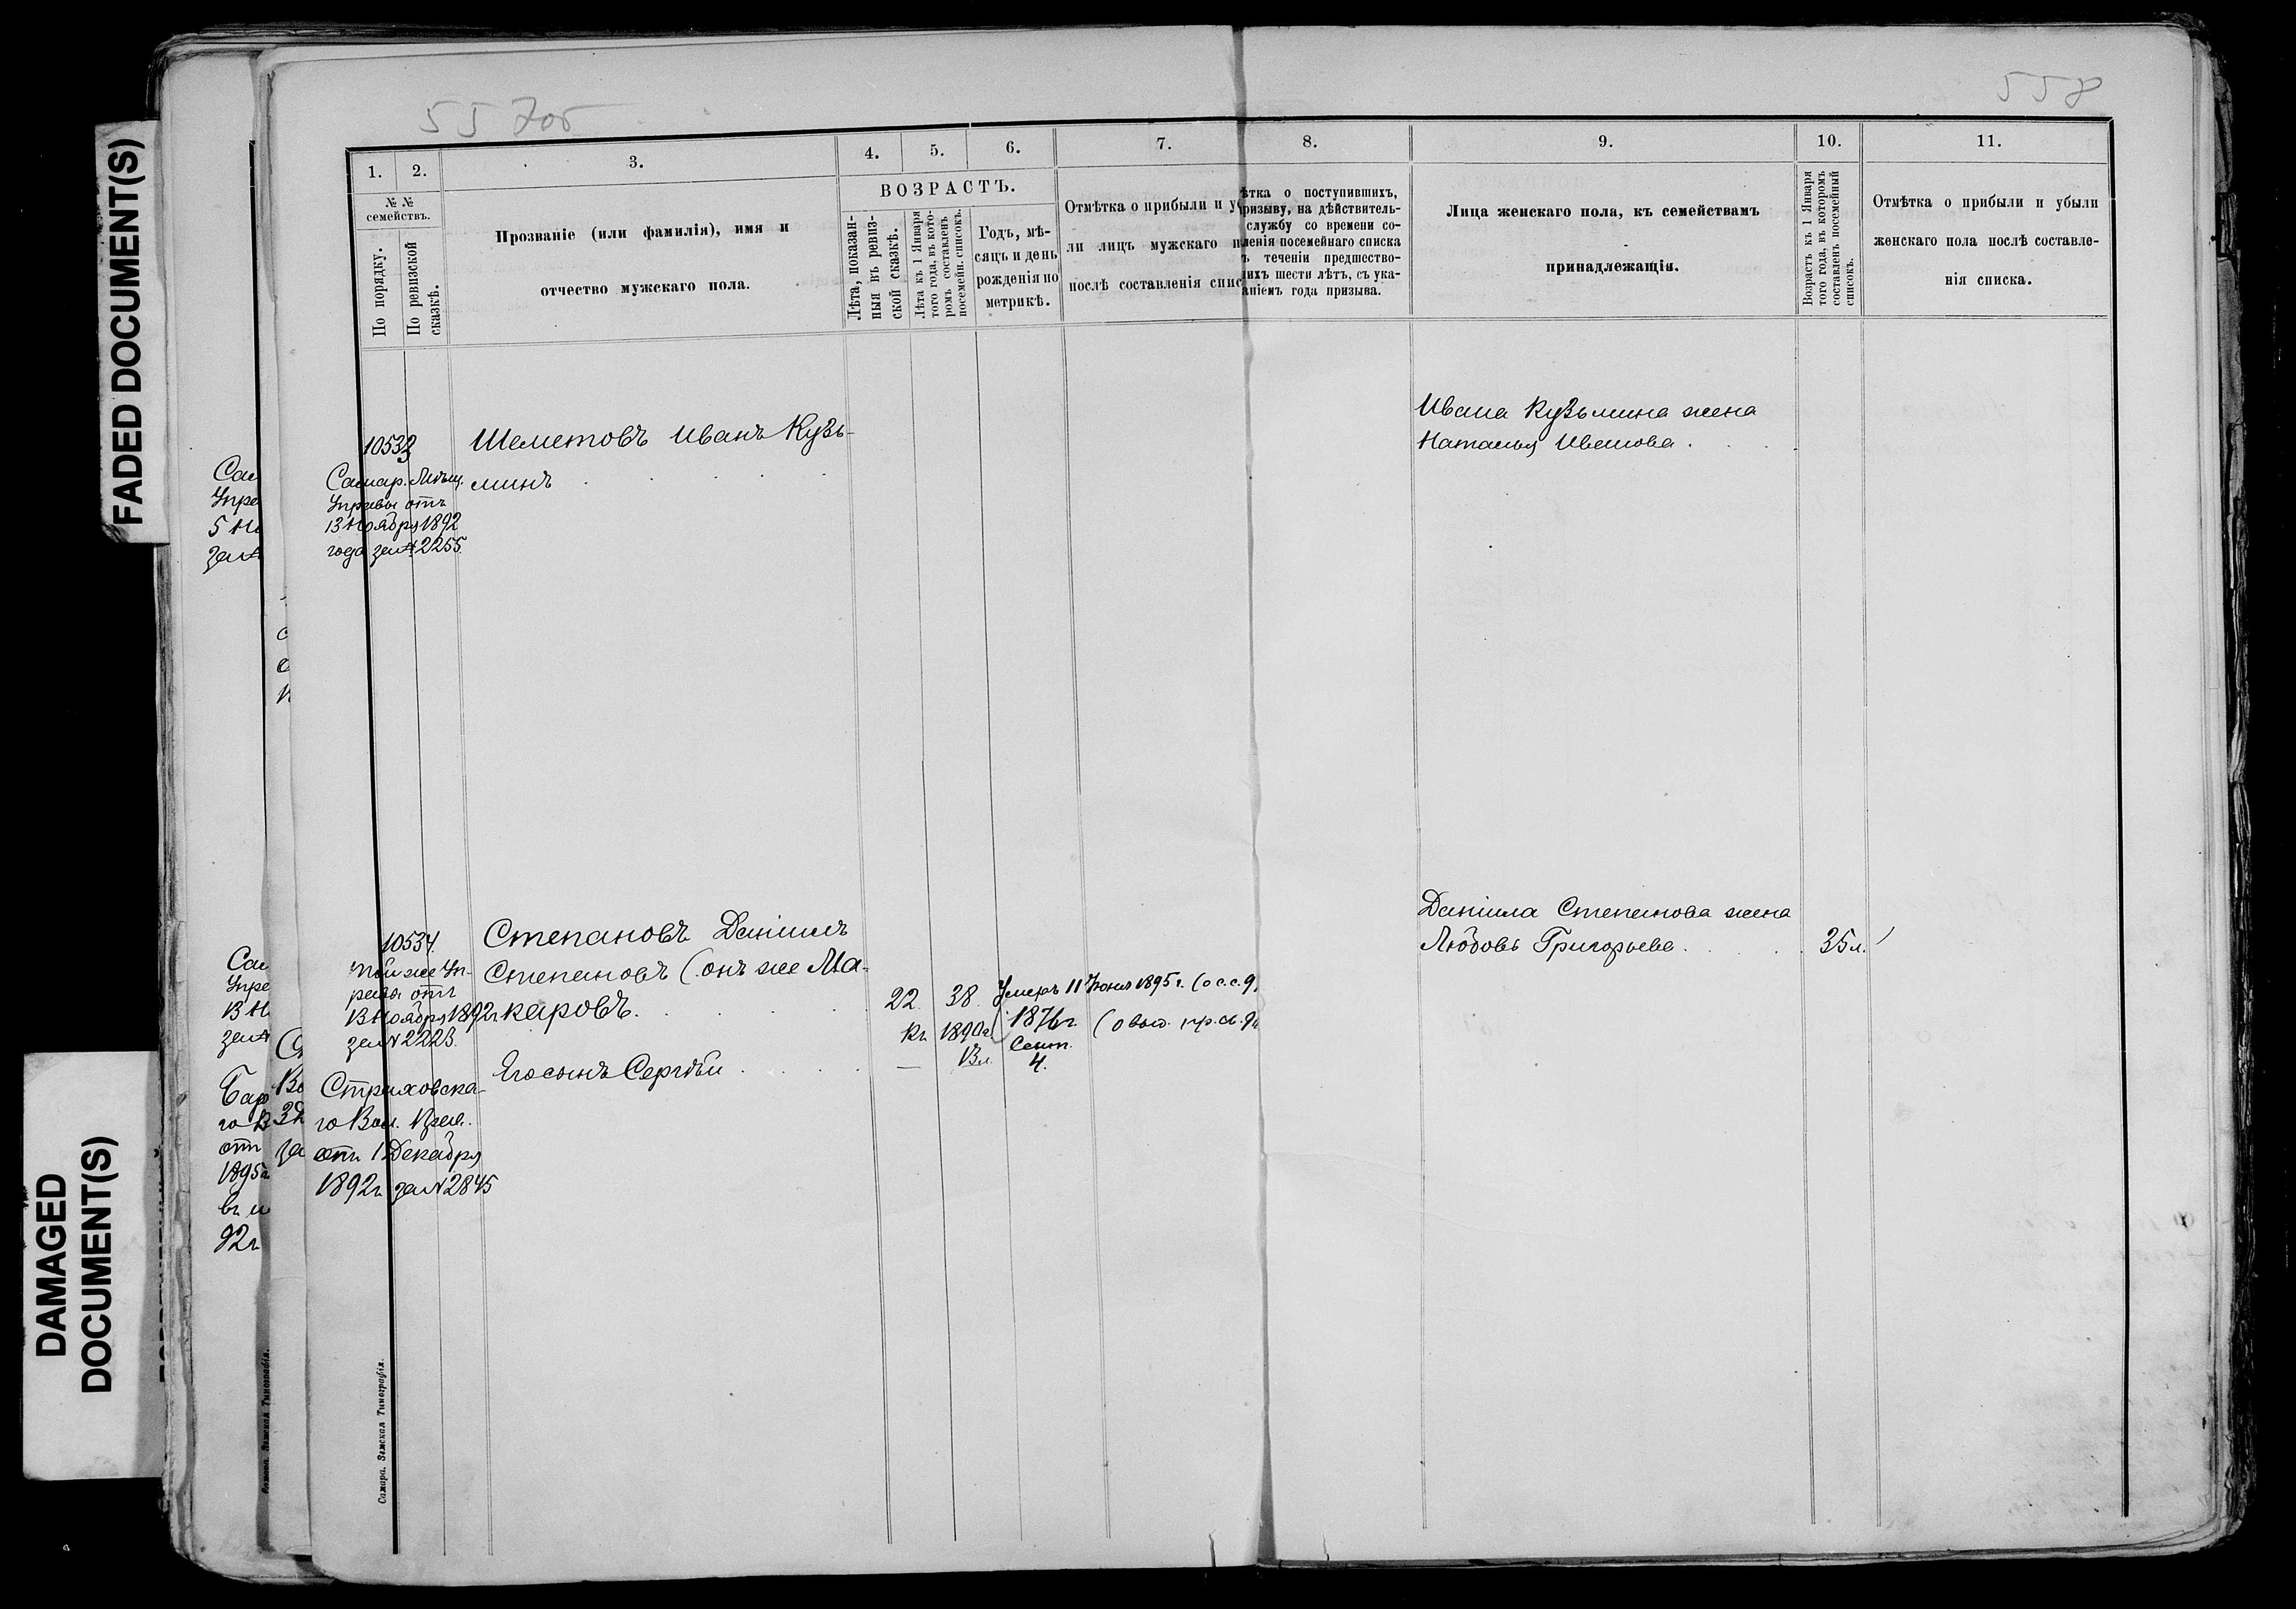 FADED DOCUMENT(S)
DAMAGED DOCUMENT(S)
557об
558
1. 2. 3. 4. 5. 6. 7. 8. 9. 10. 11.
№ № семействъ.
По порядку.
По ревизской сказкѣ.
Прозваніе (или фамилія), имя и
отчество мужскаго пола.
ВОЗРАСТЪ.
Лѣта, показан-
ныя въ ревиз-
ской сказкѣ.
Лѣта къ 1 Января
того года, въ кото-
ромъ составленъ
посемейн. списокъ.
Годъ, мѣ-
сяцъ и день
рожденія по
метрикѣ.
Отмѣтка о прибыли и у
ли лицъ мужскаго п
послѣ составленія спис
ѣтка о поступившихъ,
ризыву, на дѣйствитель-
службу со времени со-
ленія посемейнаго списка
ъ теченіи предшество-
ихъ шести лѣтъ, съ ука-
аніемъ года призыва.
Лица женскаго пола, къ семействамъ
принадлежащія.
Возрастъ къ 1 Января
того года, въ которомъ
составленъ посемейный
списокъ.
Отмѣтка о прибыли и убыли
женскаго пола послѣ составле-
нія списка.
10533
Самар. Мѣщ.
Управы отъ
13 Ноября 1892
года за № 2255.
Шеметовъ Иванъ Кузь-
минъ
Ивана Кузьмина жена
Наталья Иванова.
10534.
той же Уп-
равы отъ
13 Ноября 1892г
за № 2223.
Степановъ Даніилъ
Степановъ (онъ же Ма-
каровъ.
22 38 Умеръ 11 Іюня 1895 г. (о с.с. 9
Къ 1890г. 1876г. (о выд. пр. св. 9
Его сынъ Сергѣй — 13л. Сент. 4.
Даніила Степанова жена
Любовь Григорьева. 35л.
Стриховска-
го Вол. Прав.
отъ 1 Декабря
1892г. за № 2845
Сам
Упра
5 Но
за №
Сам
Упра
13 Н
за №
Бар
го В
отъ
1895г.
въ и
92г.
Во
за
Самара. Земская Типографія.